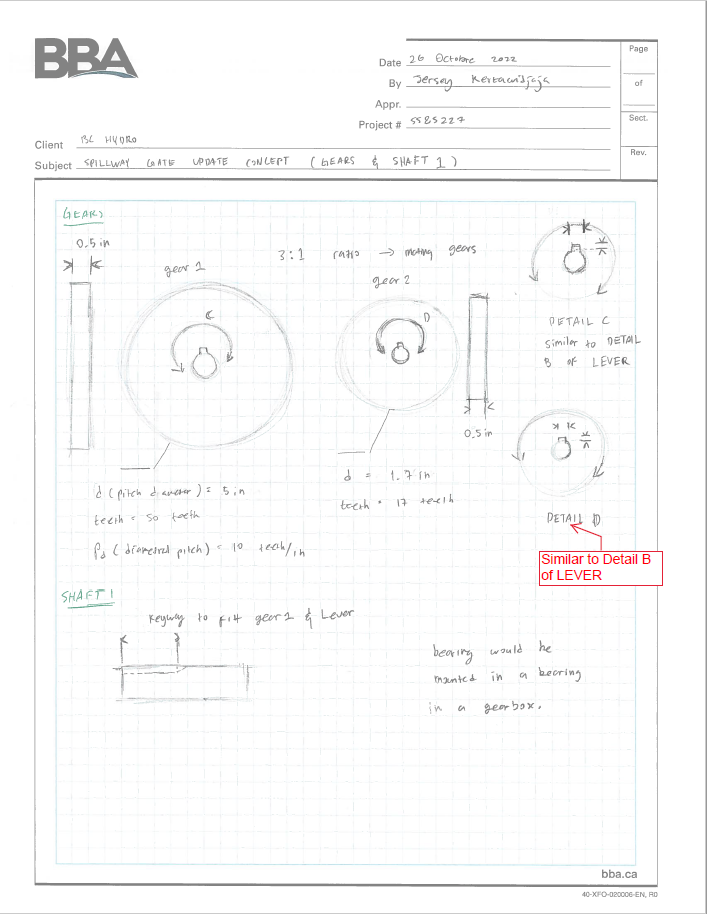 BBA
Page
of
Sect.
Rev.
Date 26 Octobre 2022
By Jersey Kertawidjaja
Appr.
Project # 5585227
Client BC HYDRO
Subject SPILLWAY GATE UPDATE CONCEPT (GEARS & SHAFT 1)
GEARS
0.5 in
3:1 ratio → mating gears
gear 1
gear 2
C
D
DETAIL C
similar to DETAIL
B of LEVER
0.5 in
d (pitch diameter) = 5 in
teeth = 50 teeth
Pd (diametral pitch) = 10 teeth/in
d = 1.7 in
teeth = 17 teeth
DETAIL D
Similar to Detail B
of LEVER
SHAFT 1
keyway to fit gear 1 & Lever
bearing would be
mounted in a bearing
in a gearbox.
bba.ca
40-XFO-020006-EN, R0